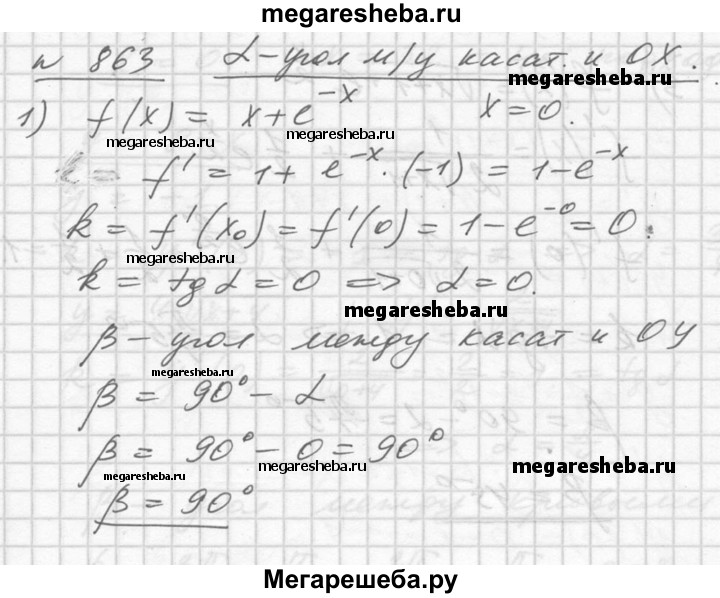 megaresheba.ru
N 863 α-угол м/у касат. и OX.
megaresheba.ru
1) f(x) = x+e^{-x} x=0.
megaresheba.ru megaresheba.ru
f' = 1+ e^{-x}·(-1) = 1-e^{-x}
k = f'(x₀) = f'(0) = 1-e^{-0} = 0.
megaresheba.ru
k = tg α = 0 => α=0.
megaresheba.ru
β-угол между касат и OY
β = 90°- α
megaresheba.ru
β = 90°- 0 = 90°
megaresheba.ru megaresheba.ru
β = 90°
megaresheba.ru
Мегарешеба.ру